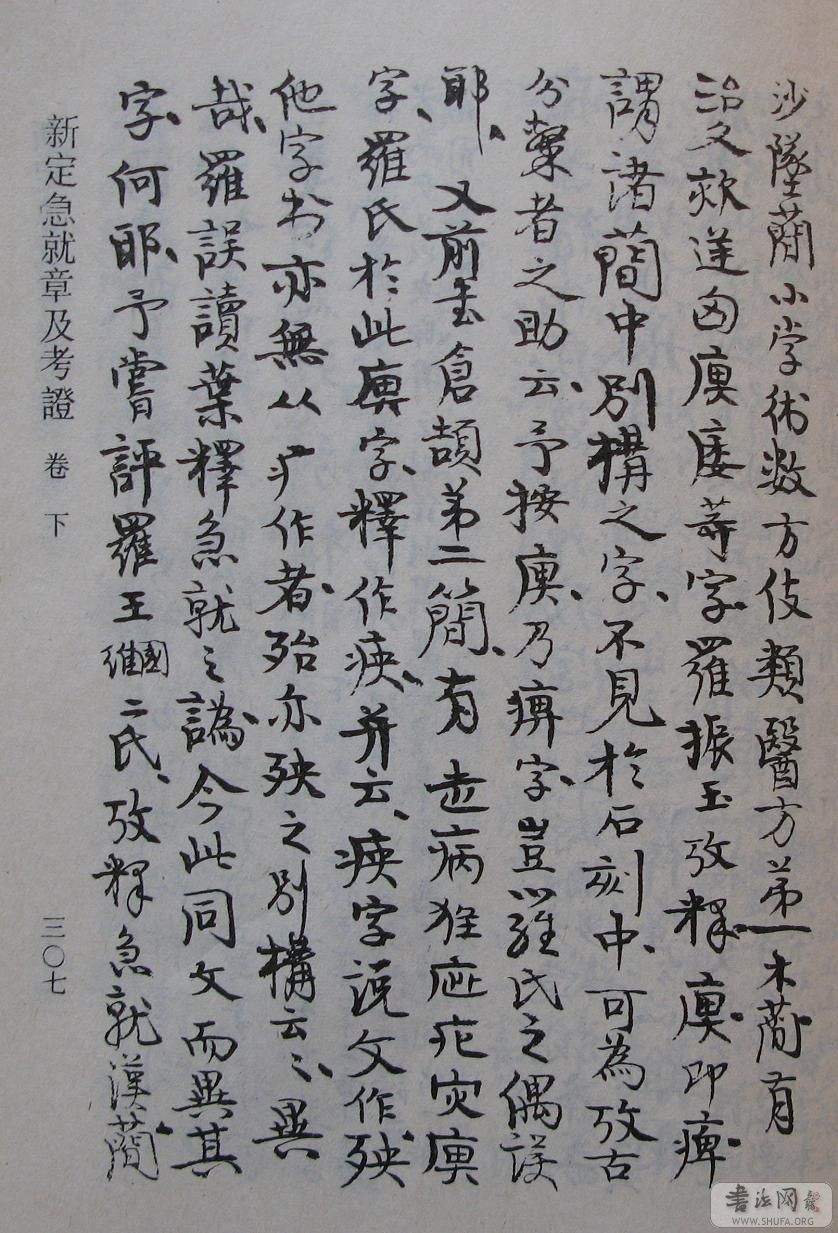 沙墜蕳小学術数方伎類醫方第一木蕳有
治久欬逆匈庾痿等字羅振玉攷釋庾即痺
謂諸蕳中別構之字不見於石刻中可為攷古
分槩者之助云予按庾乃痹字豈羅氏之偶誤
耶又前書倉頡第二簡有走病狂疵疕灾庾
字羅氏於此庾字釋作疾并云疾字説文作殃
他字书亦無从疒作者殆亦殃之別構云云異
哉羅誤讀葉釋急就之譌今此同文而異其
字何耶予嘗評羅王國維二氏攷释急就漢蕳
新定急就章及考證 卷下 三〇七
書法网 WWW.SHUFA.ORG